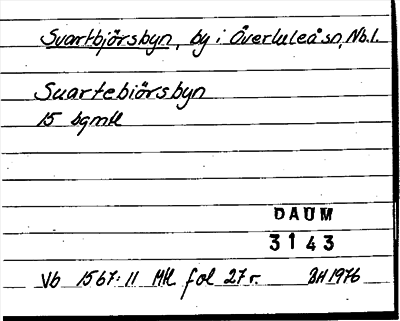 Svartbjörsbyn, by i Överluleå sn, Nb.l.
Suartebiörsbyn
15 bgmtl
DAUM
3143
Vb 1567:11 Mtl fol 27 r. BH 1976